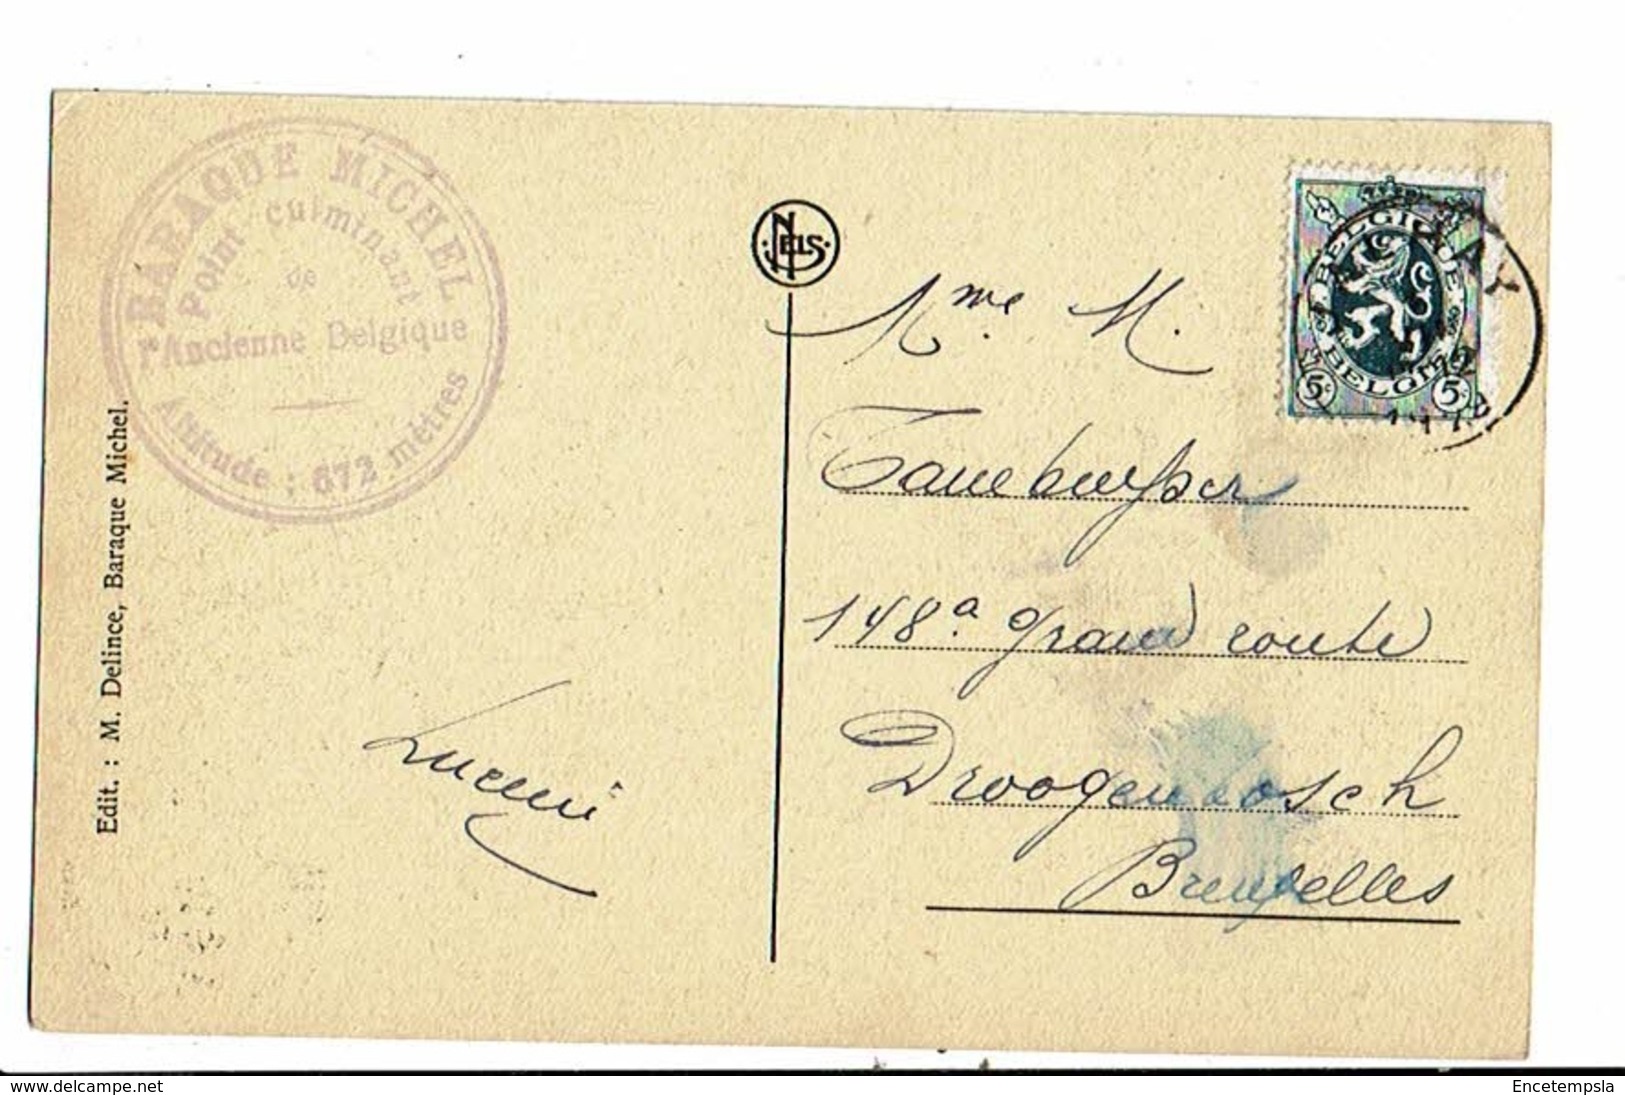 BARAQUE MICHEL
Point culminant
de
l'Ancienne Belgique
Altitude : 672 mètres
Edit. : M. Delince, Baraque Michel.
NELS
BELGIQUE
BELGIË
5c 5c
Mme M.
148a grand route
Droogenbosch
Bruxelles
www.delcampe.net
Encetempsla